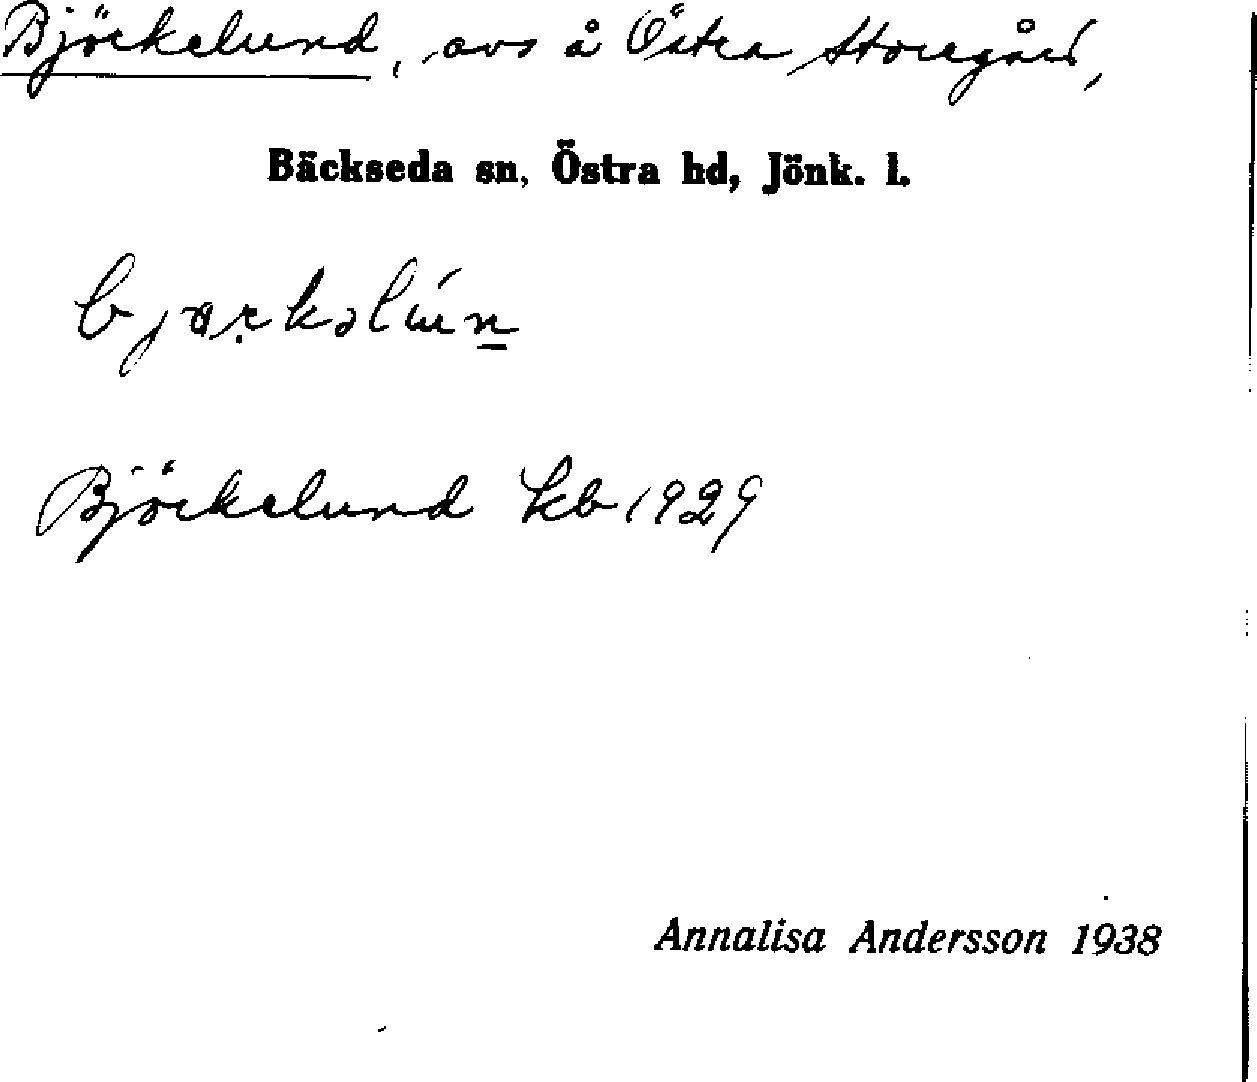 Björkelund, avs å Östra Storegård,
Bäckseda sn, Östra hd, Jönk. l.
Björkelund kb 1929
Annalisa Andersson 1938